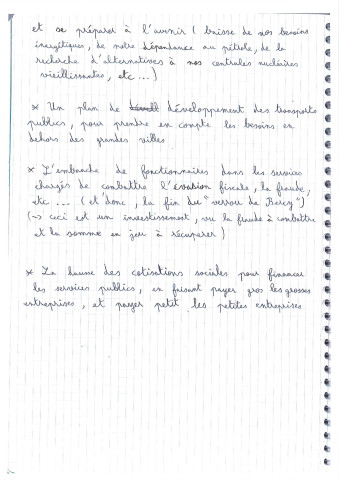 et se préparer à l'avenir (baisse de nos besoins
énergétiques, de notre dépendance au pétrole, de la
recherche d'alternatives à nos centrales nucléaires
vieillissantes, etc ...)
* Un plan de développement des transports
publics, pour prendre en compte les besoins en
dehors des grandes villes
* L'embauche de fonctionnaires dans les services
chargés de combattre l'évasion fiscale, la fraude,
etc ... (et donc, la fin du "verrou de Bercy")
(→ ceci est un investissement, vu la fraude à combattre
et la somme en jeu à récupérer)
* La hausse des cotisations sociales pour financer
les services publics, en faisant payer gros les grosses
entreprises, et payer petit les petites entreprises